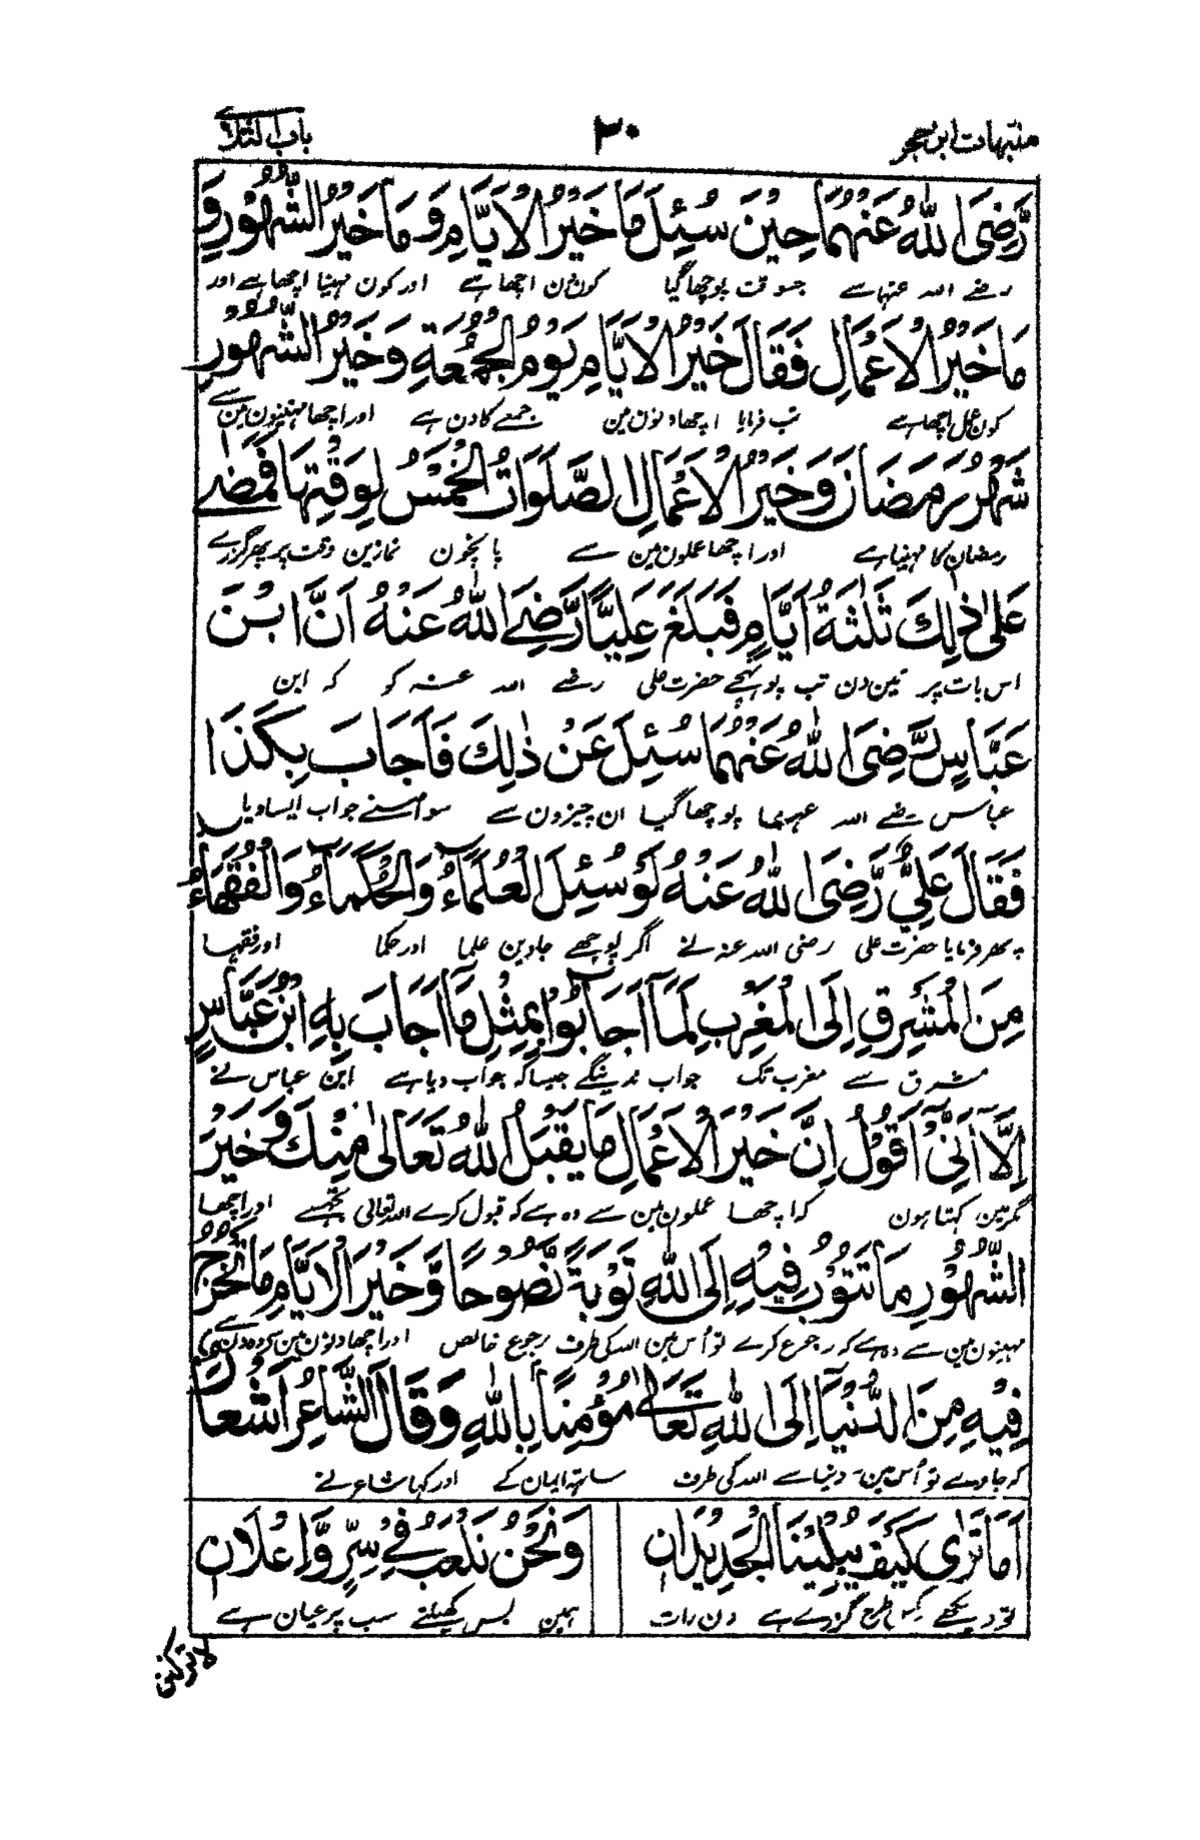 منبہات ابن حجر ۳۰ باب الثلاثے
رَّضِىَ اللّٰهُ عَنْهُمَا حِيْنَ سُئِلَ مَا خَيْرُ الْاَيَّامِ وَمَا خَيْرُ الشُّهُوْرِ وَ
رضے اللہ عنہا سے جسوقت پوچھا گیا کون دن اچھا ہے اور کون مہینا اچھا ہے اور
مَا خَيْرُ الْاَعْمَالِ فَقَالَ خَيْرُ الْاَيَّامِ يَوْمُ الْجُمُعَةِ وَخَيْرُ الشُّهُوْرِ
کون عمل اچھا ہے تب فرمایا اچھا دنون مین جمعے کا دن ہے اور اچھا مہینون مین سے
شَهْرُ رَمَضَانَ وَخَيْرُ الْاَعْمَالِ الصَّلَوَاتُ الْخَمْسُ لِوَقْتِهَا فَمَضٰے
رمضان کا مہینا ہے اور اچھا عملون مین سے پانچون نمازین وقت پر پھر گزرے
عَلٰى ذٰلِكَ ثَلٰثَةُ اَيَّامٍ فَبَلَغَ عَلِيًّا رَّضِےَ اللّٰهُ عَنْهُ اَنَّ ابْنَ
اس بات پر تین دن تب پہونچے حضرت علی رضے اللہ عنہ کو کہ ابن
عَبَّاسٍ رَّضِىَ اللّٰهُ عَنْهُمَا سُئِلَ عَنْ ذٰلِكَ فَاَجَابَ بِكَذَا
عباس رضے اللہ عنہما پوچھا گیا ان چیزون سے سو اسنے جواب ایسا دیا
فَقَالَ عَلِيٌّ رَّضِىَ اللّٰهُ عَنْهُ لَوْ سُئِلَ الْعُلَمَآءُ وَالْحُكَمَآءُ وَالْفُقَهَآءُ
پھر فرمایا حضرت علی رضی اللہ عنہ نے اگر پوچھے جاوین علما اور حکما اور فقہا
مِنَ الْمَشْرِقِ اِلَى الْمَغْرِبِ لَمَآ اَجَابُوْا بِمِثْلِ مَا اَجَابَ بِهِ ابْنُ عَبَّاسٍ
مشرق سے مغرب تک جواب نہ دینگے جیسا کہ جواب دیا ہے ابن عباس نے
اِلَّآ اَنِّىْٓ اَقُوْلُ اِنَّ خَيْرَ الْاَعْمَالِ مَا يَقْبَلُ اللّٰهُ تَعَالٰى مِنْكَ وَخَيْرَ
مگر مین کہتا ہون کہ اچھا عملون مین سے وہ ہے کہ قبول کرے اللہ تعالی تجھسے اور اچھا
الشُّهُوْرِ مَا تَتُوْبُ فِيْهِ اِلَى اللّٰهِ تَوْبَةً نَّصُوْحًا وَّخَيْرُ الْاَيَّامِ مَا تَخْرُجُ
مہینون مین سے وہ ہے کہ رجوع کرے تو اُس مین اللہ کی طرف رجوع خالص اور اچھا دنون مین سے وہ دن ہے
فِيْهِ مِنَ الدُّنْيَآ اِلَى اللّٰهِ تَعَالٰى مُؤْمِنًا بِاللّٰهِ وَقَالَ الشَّاعِرُ اَشْعَارًا
کہ جاوے تو اُس مین دنیا سے اللہ کی طرف ساتھ ایمان کے اور کہا شاعر نے
اَمَا تَرٰى كَيْفَ يُبْلِيْنَا الْجَدِيْدَانِ وَنَحْنُ نَلْعَبُ فِيْ سِرٍّ وَّاِعْلَانٍ
تو دیکھے کس طرح گزرے ہے دن رات ہمین بس کھیلنے سب پر عیان ہے
لا ترکنن